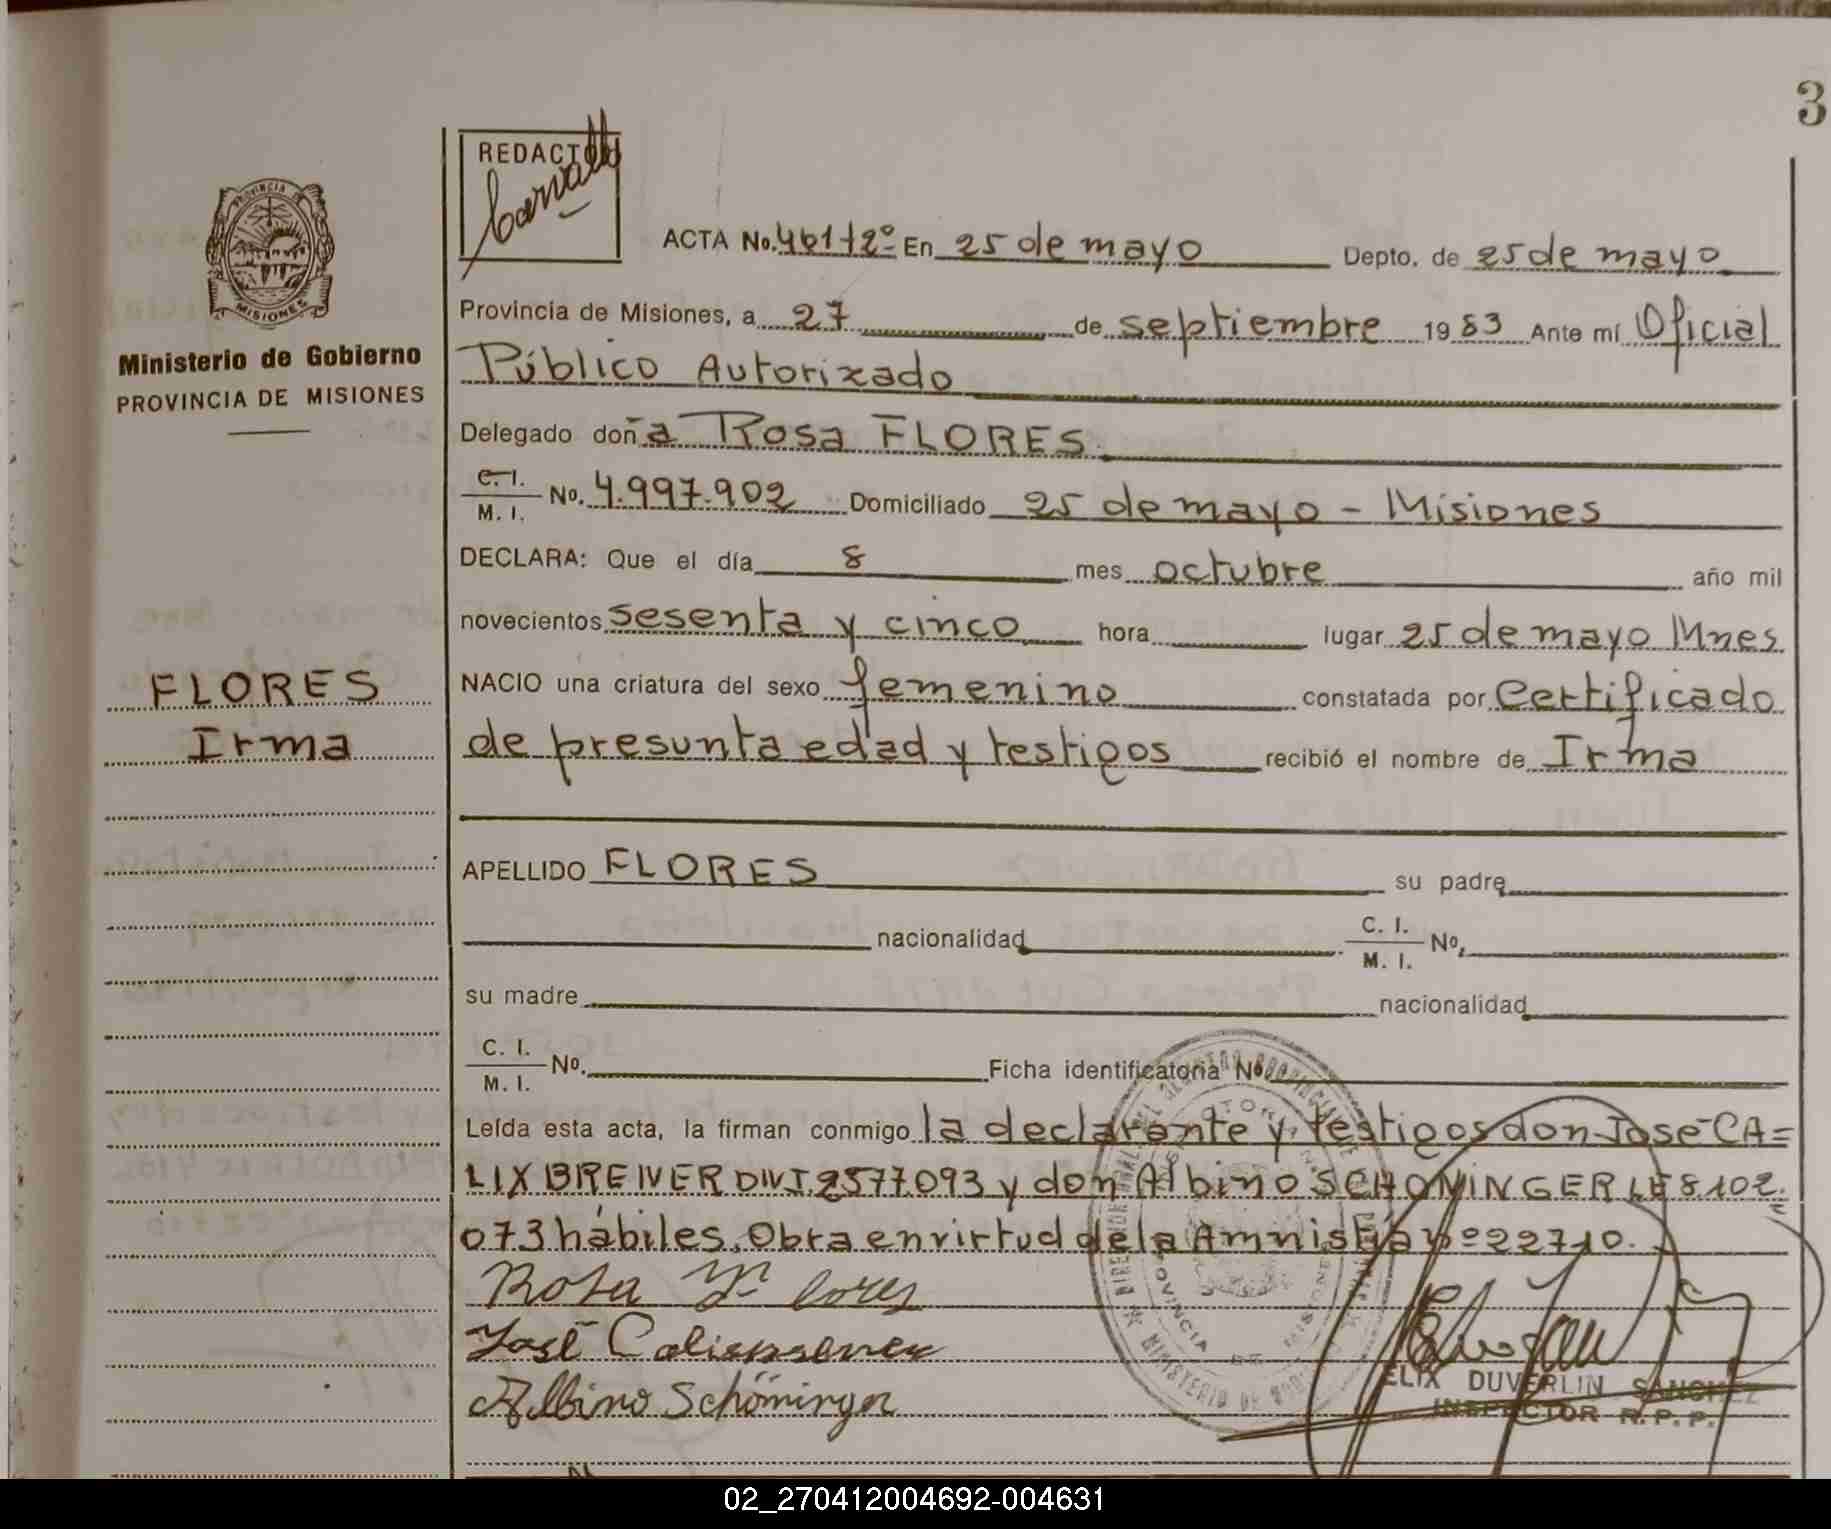 3
REDACTO
Carvallo
PROVINCIA DE
MISIONES
Ministerio de Gobierno
PROVINCIA DE MISIONES
ACTA No. 461 t 2º En 25 de mayo Depto. de 25 de mayo
Provincia de Misiones, a 27 de septiembre 19 83 Ante mí Oficial
Público Autorizado
Delegado doña Rosa FLORES
C. I. / M. I. No. 4.997.902 Domiciliado 25 de mayo - Misiones
DECLARA: Que el día 8 mes octubre año mil
novecientos sesenta y cinco hora lugar 25 de mayo Mnes
FLORES
Irma
NACIO una criatura del sexo femenino constatada por Certificado
de presunta edad y testigos recibió el nombre de Irma
APELLIDO FLORES su padre
nacionalidad C. I. / M. I. No.
su madre nacionalidad
C. I. / M. I. No. Ficha identificatoria No
Leída esta acta, la firman conmigo la declarante y testigos don José CA=
LIX BREIVER DNI 2577.093 y don Albino SCHONINGER LE 8.102.
073 hábiles. Obra en virtud de la Amnistía Nº 22710.
Rosa Flores
José
Albino Schöninger
ELIX DUVERLIN SANCHEZ
INSPECTOR R. P. P.
02_270412004692-004631